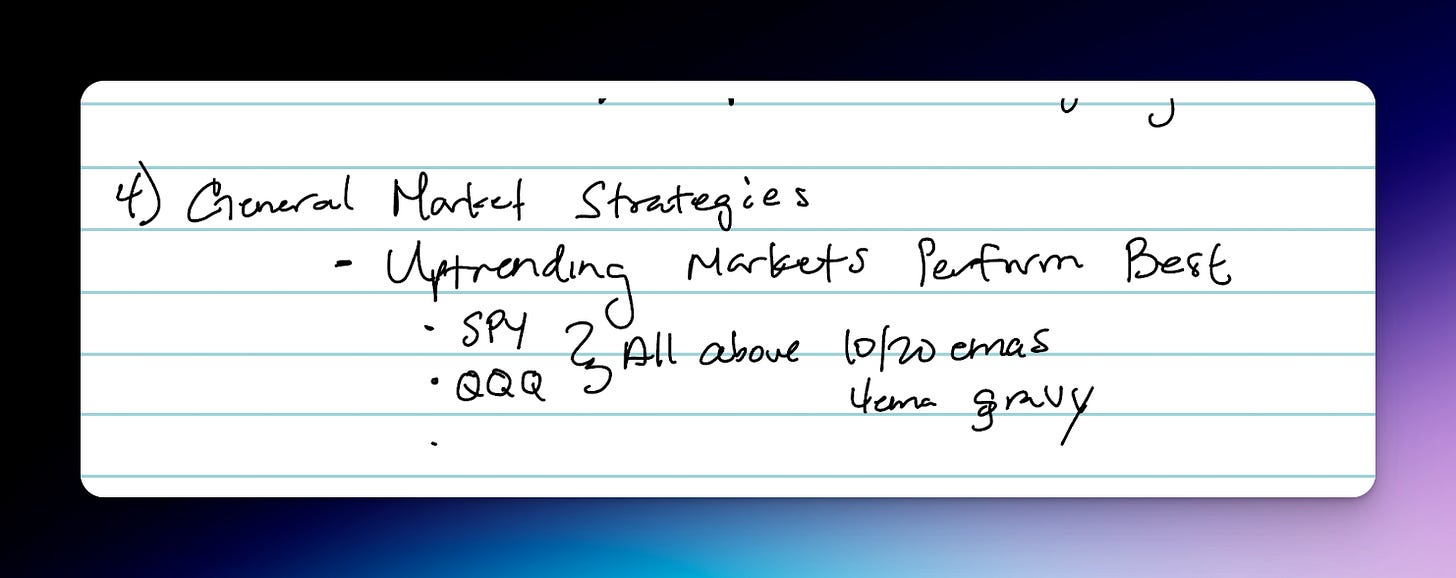 4) General Market Strategies
- Uptrending Markets Perform Best
· SPY } All above 10/20 emas
· QQQ 4ema gravy
·